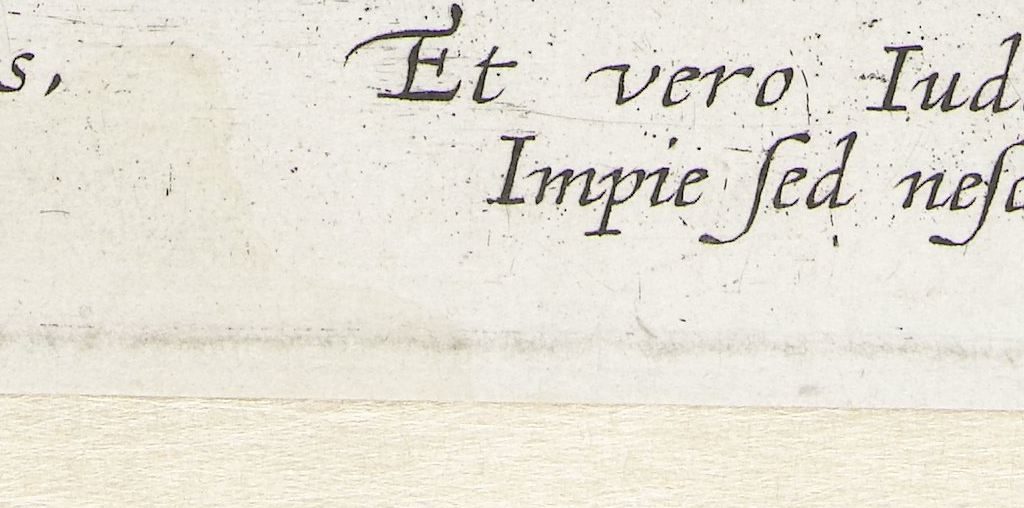 s, Et vero Iud
Impie ſed neſc